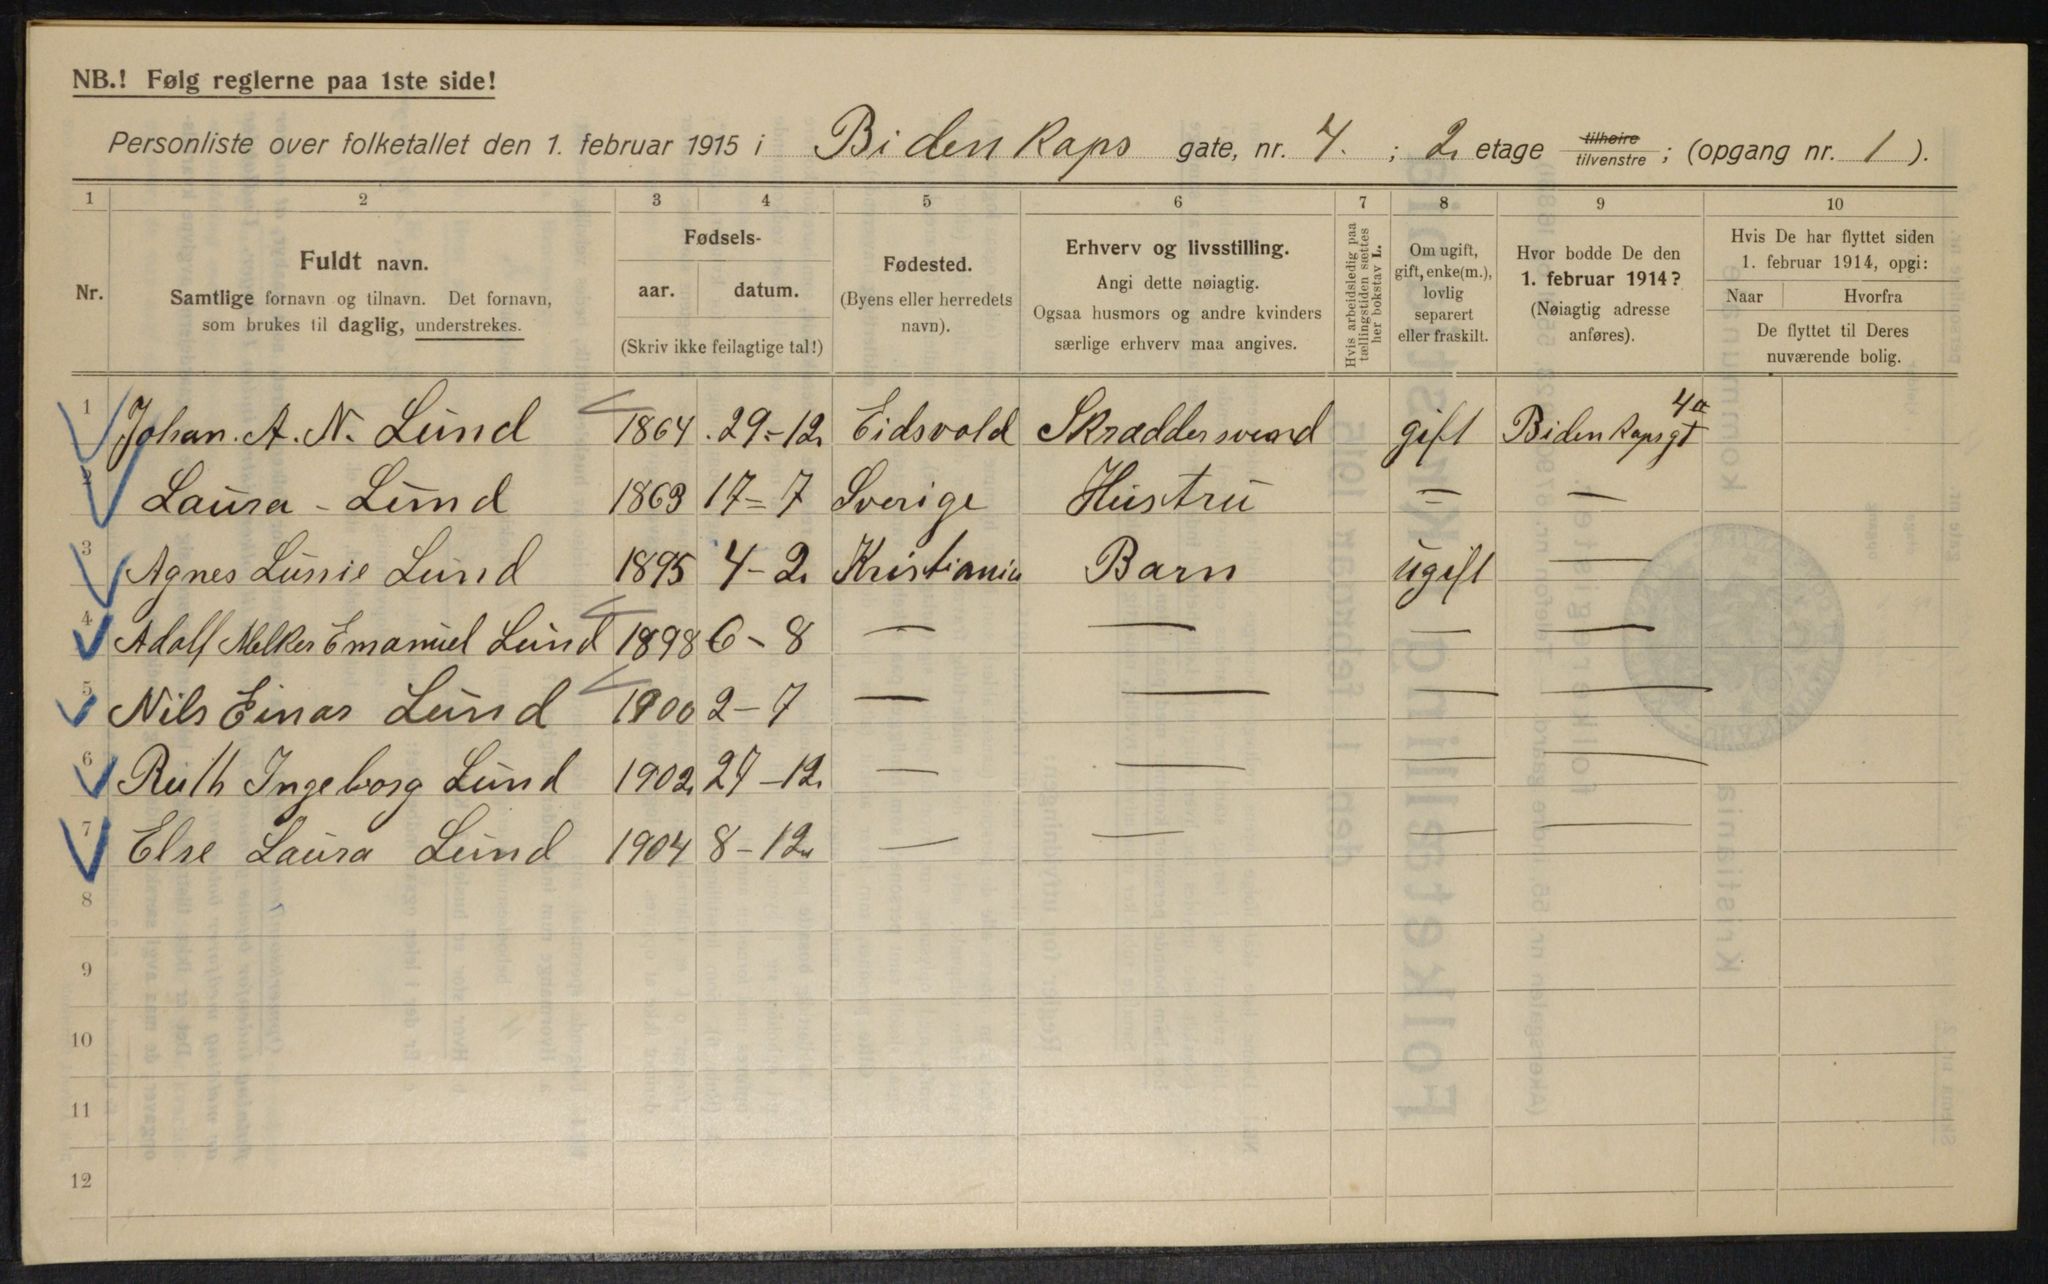 NB.! Følg reglerne paa 1ste side!
Personliste over folketallet den 1. februar 1915 i Bidenkaps gate, nr. 4. ; 2. etage tilhøire tilvenstre ; (opgang nr. 1 ).
1 2 3 4 5 6 7 8 9 10
Nr.
Fuldt navn.
Samtlige fornavn og tilnavn. Det fornavn,
som brukes til daglig, understrekes.
Fødsels-
aar. datum.
(Skriv ikke feilagtige tal!)
Fødested.
(Byens eller herredets
navn).
Erhverv og livsstilling.
Angi dette nøiagtig.
Ogsaa husmors og andre kvinders
særlige erhverv maa angives.
Hvis arbeidsledig paa
tællingstiden sættes
her bokstav L.
Om ugift,
gift, enke(m.),
lovlig
separert
eller fraskilt.
Hvor bodde De den
1. februar 1914?
(Nøiagtig adresse
anføres).
Hvis De har flyttet siden
1. februar 1914, opgi:
Naar Hvorfra
De flyttet til Deres
nuværende bolig.
1 Johan. A. N. Lund 1864 29-12 Eidsvold Skræddersvend gift Bidenkapsgt 4a
2 Laura - Lund 1863 17=7 Sverige Hustru = —
3 Agnes Lussie Lund 1895 4-2 Kristiania Barn ugift —
4 Adolf Melker Emanuel Lund 1898 6-8 — — — —
5 Nils Einar Lund 1900 2-7 — — — —
6 Ruth Ingeborg Lund 1902 27-12 — — — —
7 Else Laura Lund 1904 8-12 — — — —
8
9
10
11
12